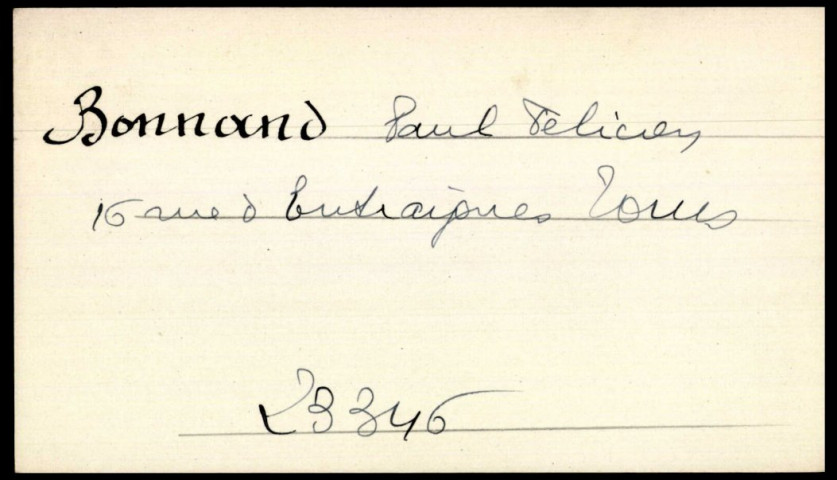 Bonnand Paul Félicien
15 rue d Entraigues Tours
23345